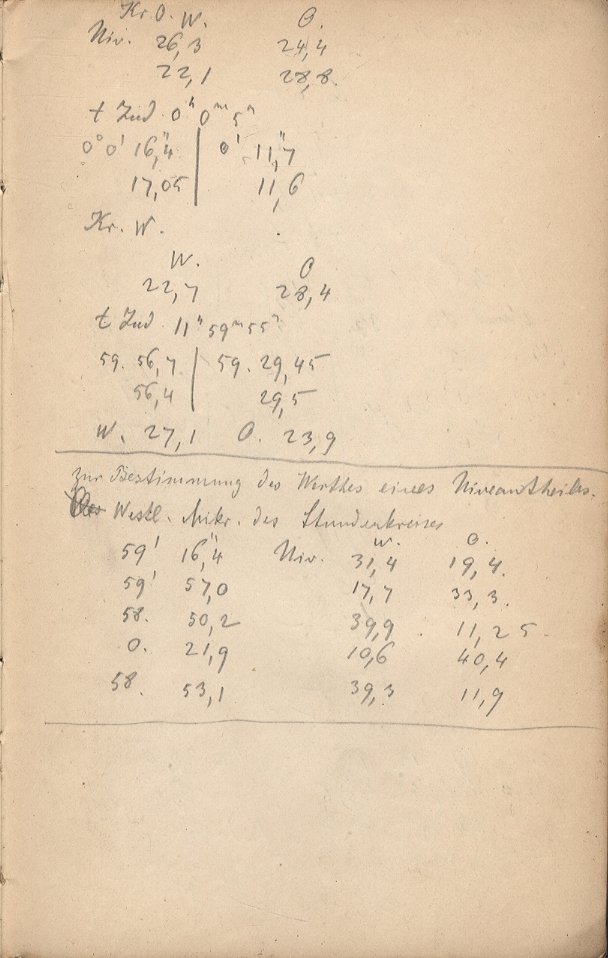 Kr. O. W. O.
Niv. 26,3 24,4
22,1 28,8.
t Ind. 0ʰ 0ᵐ 5ˢ
0° 0' 16,"4 | 0' 11,"7
17,05 | 11,6
Kr. W.
W. O
22,7 28,4
t Ind. 11ʰ 59ᵐ 55ˢ
59. 56,7 | 59. 29,45
56,4 | 29,5
W. 27,1 O. 23,9
Zur Bestimmung des Werthes eines Niveautheiles.
Westl. Mikr. des Stundenkreises
W. O.
59' 16,"4 Niv. 31,4 19,4.
59' 57,0 17,7 33,3.
58. 50,2 39,9 11,25.
0. 21,9 10,6 40,4
58. 53,1 39,3 11,9